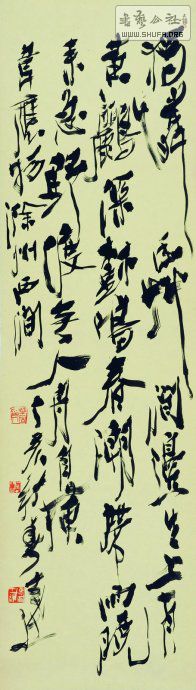 書藝公社
WWW.SHUFA.ORG
獨憐幽草澗邊生上有
黃鸝深樹鳴春潮帶雨晚
来急野渡無人舟自橫
韋應物滁州西澗